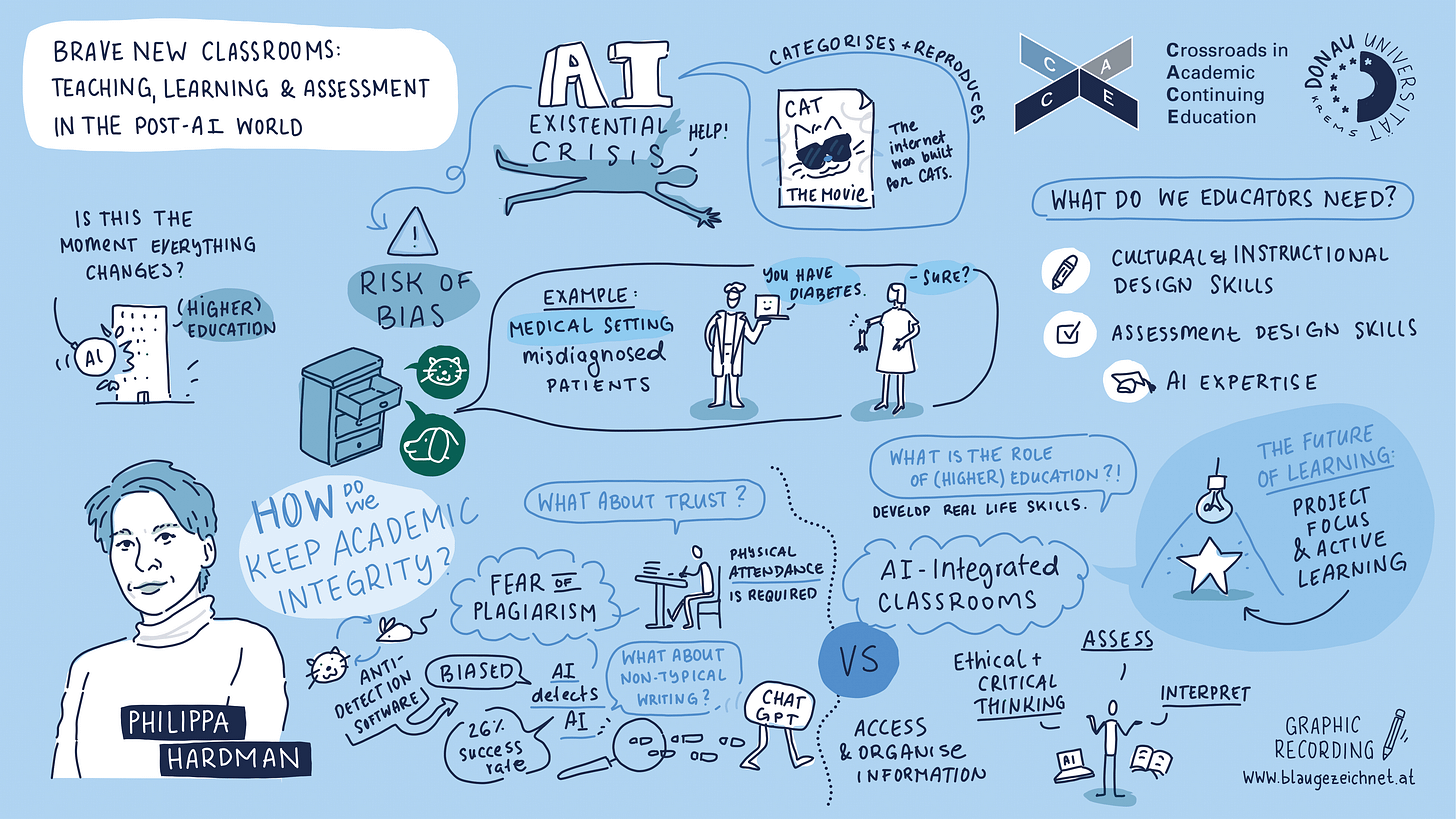 BRAVE NEW CLASSROOMS:
TEACHING, LEARNING & ASSESSMENT
IN THE POST-AI WORLD
AI
EXISTENTIAL
CRISIS
HELP!
CATEGORISES + REPRODUCES
CAT
THE MOVIE
The
internet
was built
for CATS.
C A
C E
Crossroads in
Academic
Continuing
Education
DONAU UNIVERSITÄT
KREMS
IS THIS THE
MOMENT EVERYTHING
CHANGES?
(HIGHER)
EDUCATION
AI
!
RISK OF
BIAS
EXAMPLE:
MEDICAL SETTING
misdiagnosed
PATIENTS
YOU HAVE
DIABETES.
- SURE?
WHAT DO WE EDUCATORS NEED?
CULTURAL & INSTRUCTIONAL
DESIGN SKILLS
ASSESSMENT DESIGN SKILLS
AI EXPERTISE
PHILIPPA
HARDMAN
HOW DO
WE
KEEP ACADEMIC
INTEGRITY?
WHAT ABOUT TRUST?
FEAR OF
PLAGIARISM
PHYSICAL
ATTENDANCE
IS REQUIRED
ANTI-
DETECTION
SOFTWARE
BIASED
AI
detects
AI
26%
success
rate
WHAT ABOUT
NON-TYPICAL
WRITING?
CHAT
GPT
VS
WHAT IS THE ROLE
OF (HIGHER) EDUCATION?!
DEVELOP REAL LIFE SKILLS.
AI-Integrated
CLASSROOMS
THE FUTURE
OF LEARNING:
PROJECT
FOCUS
& ACTIVE
LEARNING
AI
ASSESS
Ethical +
CRITICAL
THINKING
INTERPRET
ACCESS
& ORGANISE
INFORMATION
AI
GRAPHIC
RECORDING
www.blaugezeichnet.at